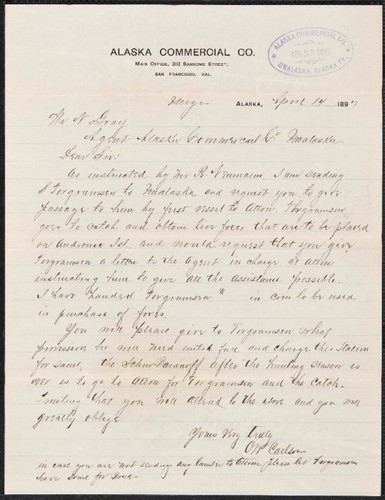 ALASKA COMMERCIAL CO.
MAIN OFFICE, 310 SANSOME STREET,
SAN FRANCISCO, CAL.
ALASKA COMMERCIAL CO.
UNALASKA, ALASKA TY.
ALASKA, April 14 189
Mr N Gray
Agent Alaska Commercial Co Unalaska
Dear Sir:
As instructed by Mr R Neumann I am sending
Torgramsen to Unalaska and request you to give
passage to him by first vessel to Attou. Torgramsen
goes to catch and obtain live foxes that are to be placed
on Andronic Isl. and would request that you give
Torgramsen a letter to the Agent in charge at Attou
instructing him to give all the assistance possible.
I have handed Torgramsen in coin to be used
in purchase of foxes.
You will please give to Torgramsen what
provision he will need and charge this Station
for same. the Schnr Baranoff after the Hunting Season is
over is to go to Attou for Torgramsen and the catch.
Trusting that you will attend to the above and you will
greatly oblige
Yours Very truly
Carlson
in case you are not sending any lumber to Attou please let Torgramsen
have some for